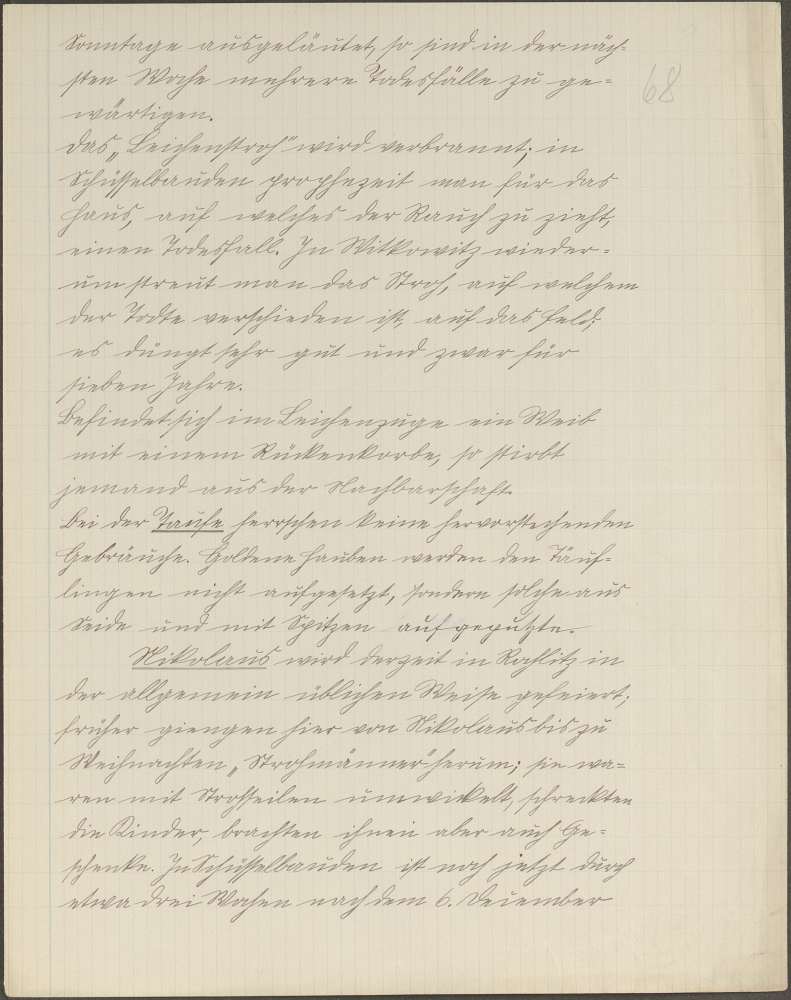 Sonntage ausgeläutet, so sind in der näch-
sten Woche mehrere Todesfälle zu ge-
68
wärtigen.
Das „Leichenstroh" wird verbrannt; in
Schüsselbauden prophezeit man für das
Haus, auf welches der Rauch zu zieht,
einen Todesfall. In Witkowitz wieder-
um streut man das Stroh, auf welchem
der Todte verschieden ist, auf das Feld;
es düngt sehr gut und zwar für
sieben Jahre.
Befindet sich im Leichenzuge ein Weib
mit einem Rückenkorbe, so stirbt
jemand aus der Nachbarschaft.
Bei der Taufe herrschen keine hervorstechenden
Gebräuche. Goldene Hauben werden den Täuf-
lingen nicht aufgesetzt, sondern solche aus
Seide und mit Spitzen aufgeputzte.
Nikolaus wird derzeit in Rochlitz in
der allgemein üblichen Weise gefeiert;
früher giengen hier von Nikolaus bis zu
Weihnachten „Strohmänner" herum; sie wa-
ren mit Strohseilen umwickelt, schreckten
die Kinder, brachten ihnen aber auch Ge-
schenke. In Schüsselbauden ist noch jetzt durch
etwa drei Wochen nach dem 6. Dezember